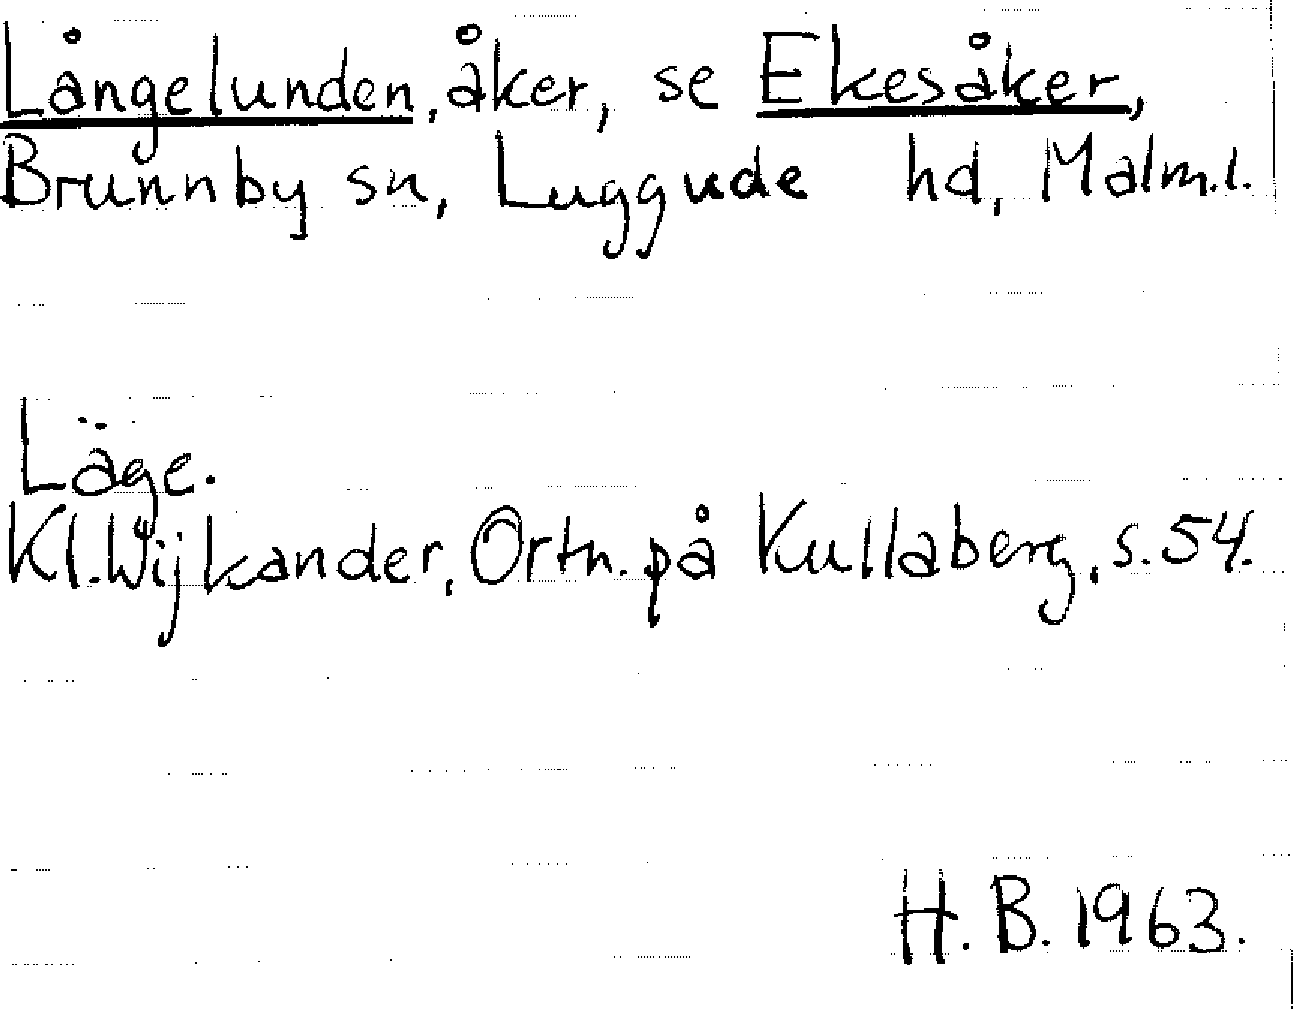 Långelunden, åker, se Ekesåker,
Brunnby sn, Luggude hd, Malm.l.
Läge.
Kl. Wijkander, Ortn. på Kullaberg, s. 54.
H. B. 1963.